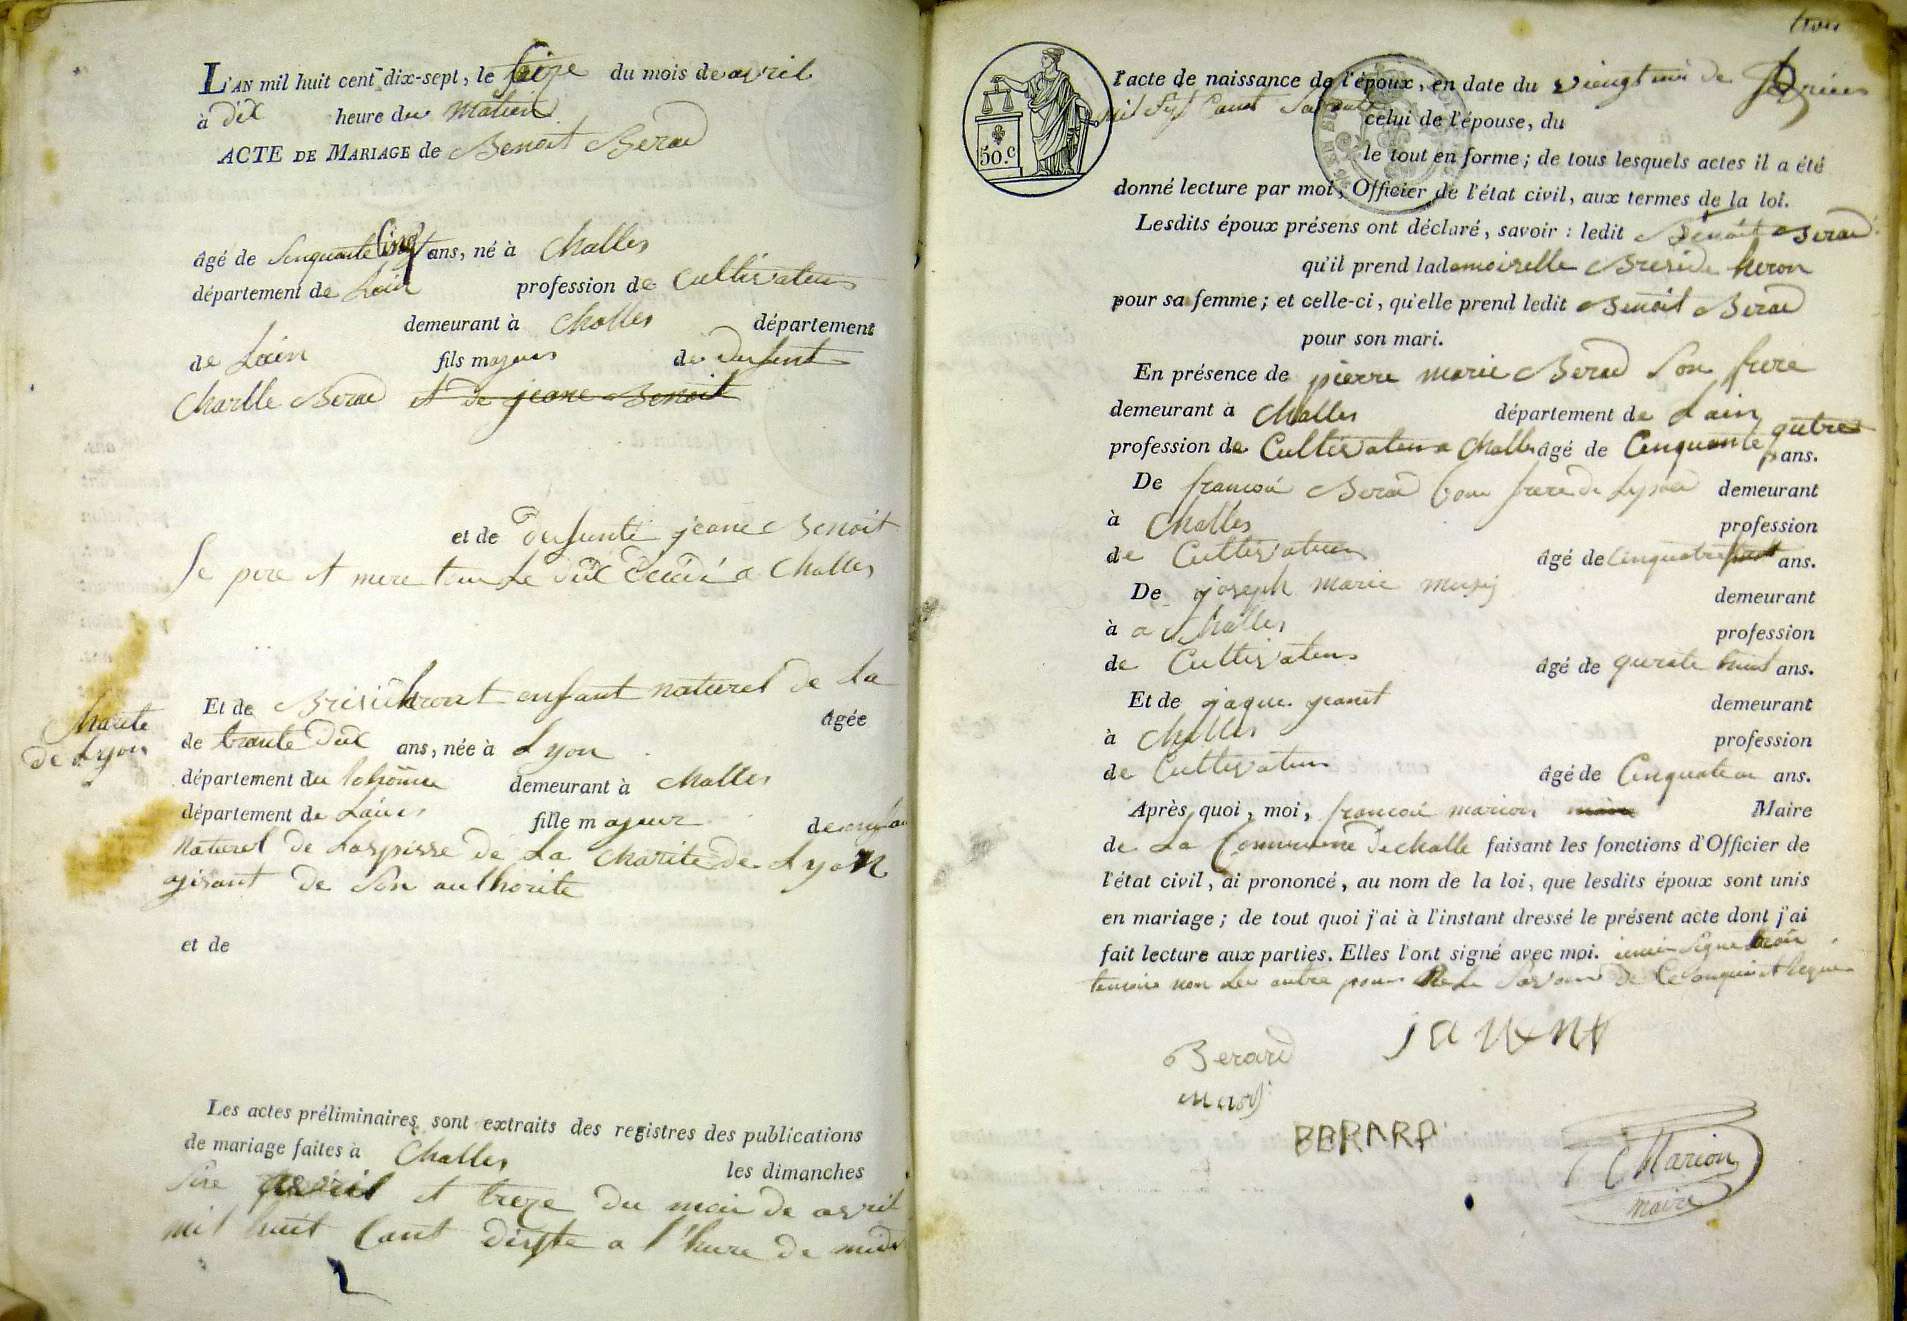 L'AN mil huit cent dix-sept, le seize du mois de avril
à dix heure du matin
ACTE DE MARIAGE de Benoit Berad
âgé de Senquante Cinq ans, né à Challes
département de Lain profession de Cultivateur
demeurant à Challes département
de Lain fils majeur de defunt
Charlle Berad et de jeane Benoit
et de defunte jeane Benoit
Se pere et mere tou Le deux a Challes
Et de enfant naturel de La
Charite
de Lyon
âgée
de trante deux ans, née à Lyon
département du demeurant à Challes
département de Lain fille majeur de
naturel de Laspisse de La Charite de Lyon
agisant de Son authorite
et de
Les actes préliminaires sont extraits des registres des publications
de mariage faites à Challes les dimanches
Sise avril et treze du moi de avril
mil huit Cant a l'hure de midi
trois
50.c
l'acte de naissance de l'époux, en date du
mil Sept Cant
celui de l'épouse, du
le tout en forme; de tous lesquels actes il a été
donné lecture par moi, Officier de l'état civil, aux termes de la loi.
Lesdits époux présens ont déclaré, savoir : ledit Benoit Berad
qu'il prend lademoiselle heron
pour sa femme; et celle-ci, qu'elle prend ledit Benoit Berad
pour son mari.
En présence de pierre marie Berad Son frere
demeurant à Challes département de Lain
profession de Cultivateur a Challe âgé de Cinquante qutre ans.
De francoi Berad frere de demeurant
à Challes profession
de Cultivateur âgé de ans.
De joseph marie demeurant
à a Challes profession
de Cultivateur âgé de qurate huit ans.
Et de jaque janet demeurant
à Challes profession
de Cultivateur âgé de ans.
Après quoi, moi, francoi marion Maire
de La Commune de Challe faisant les fonctions d'Officier de
l'état civil, ai prononcé, au nom de la loi, que lesdits époux sont unis
en mariage; de tout quoi j'ai à l'instant dressé le présent acte dont j'ai
fait lecture aux parties. Elles l'ont signé avec moi.
temoins non Les autre pour ne Le Savoir de Ce
Berard
BERARD
Marion
maire